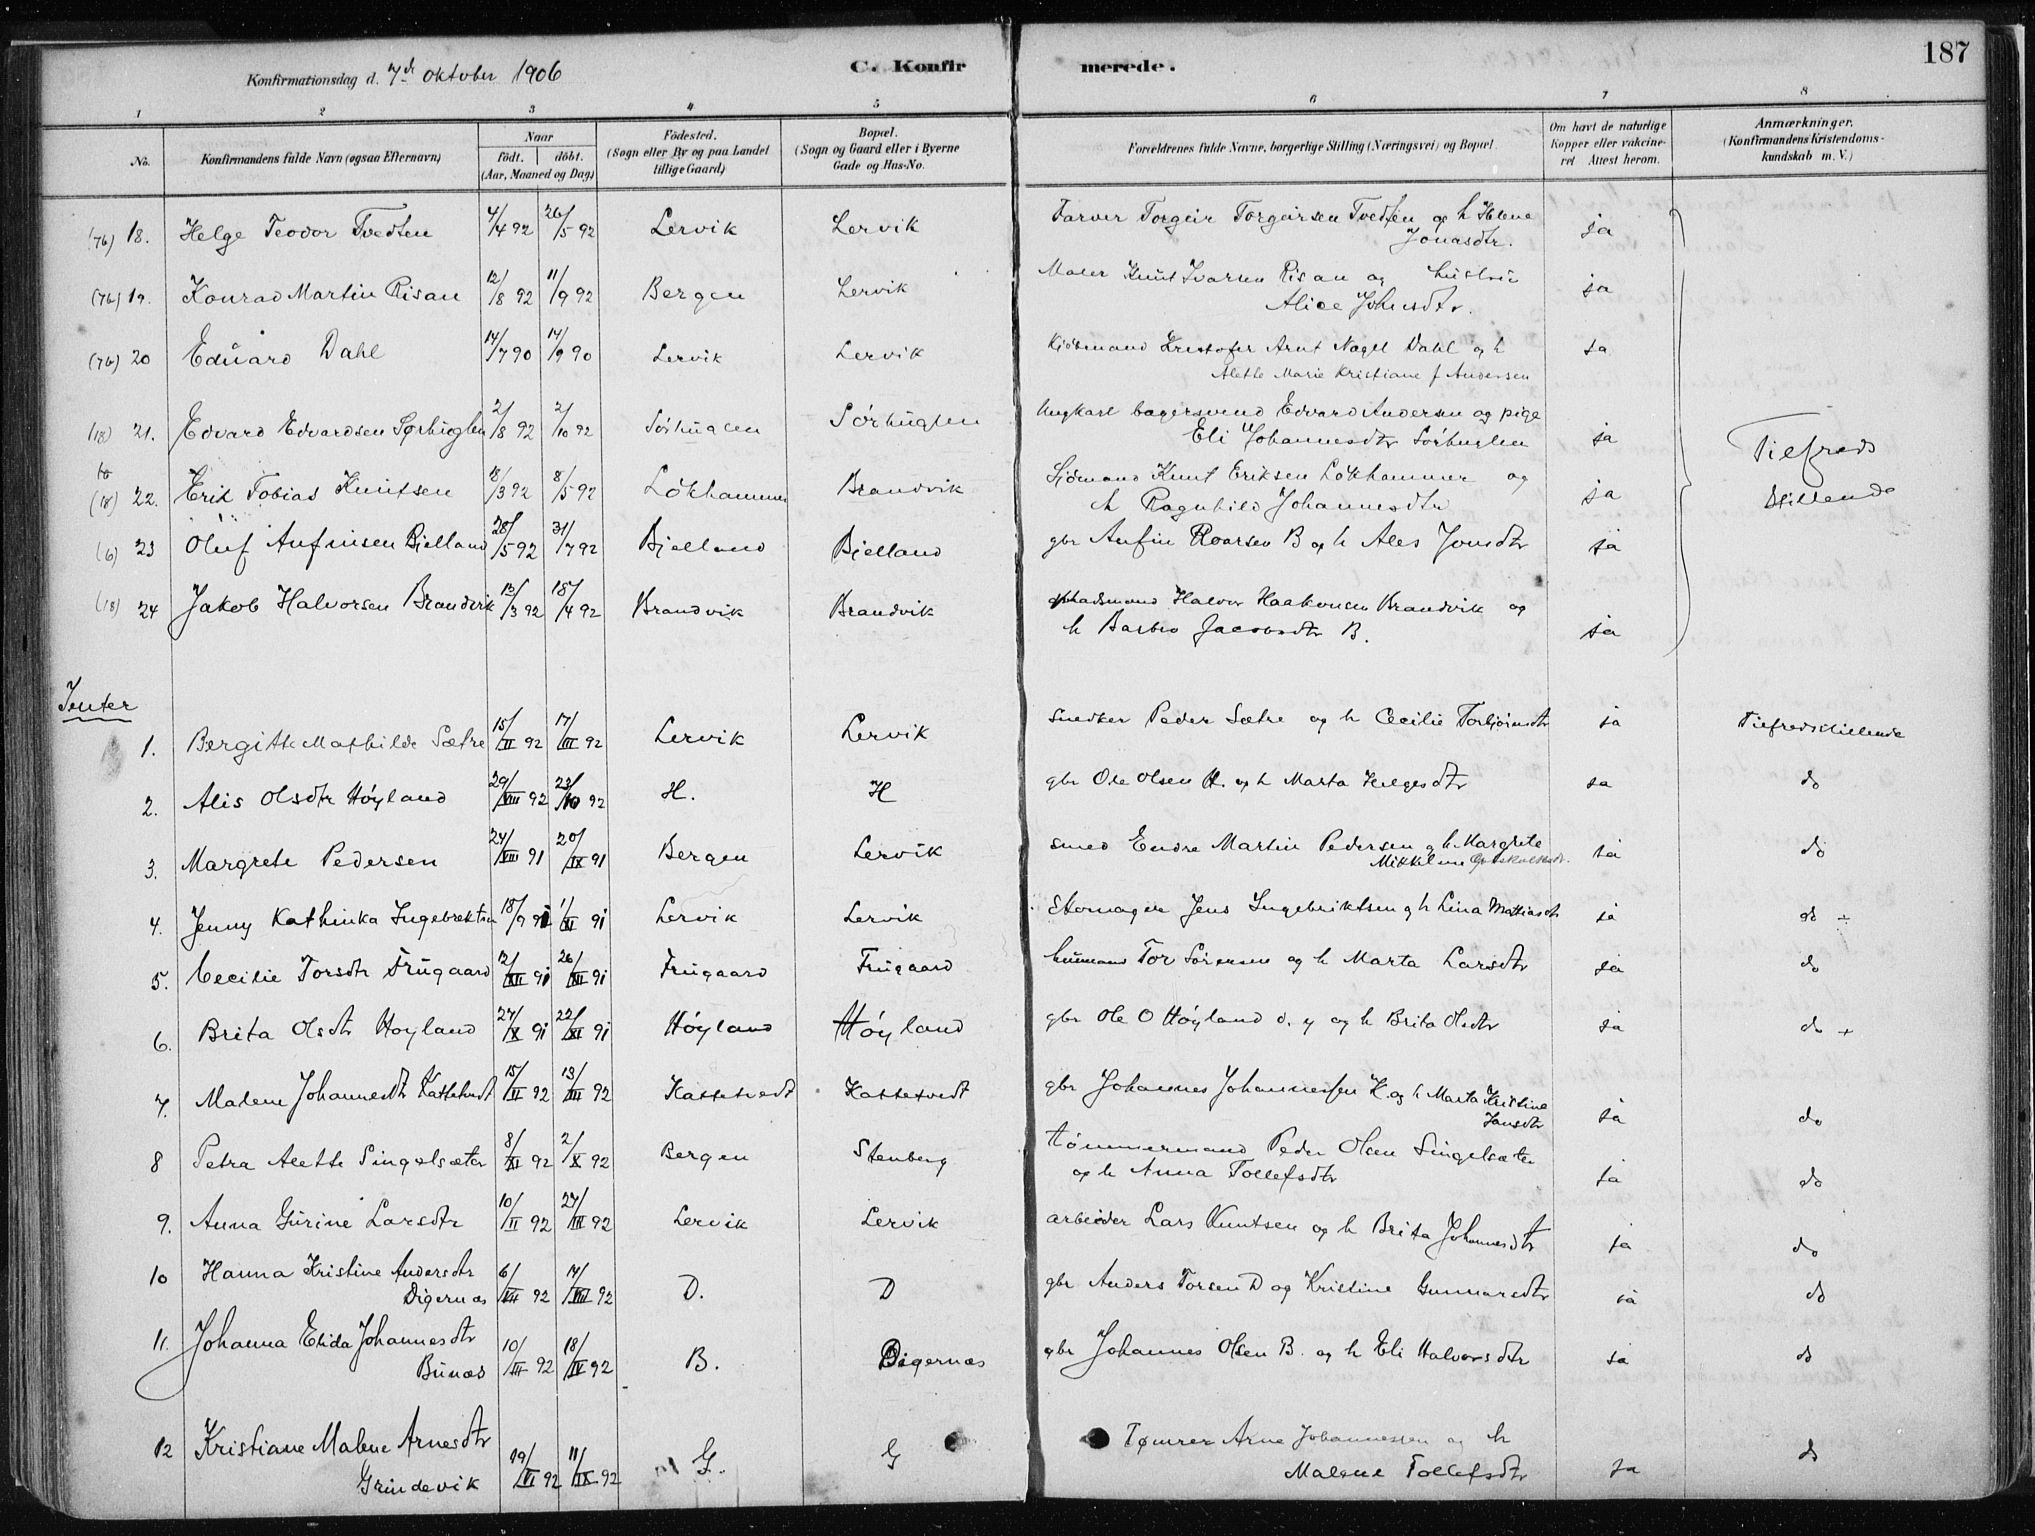 187
Konfirmationsdag d. 7de oktober 1906 C. Konfirmerede.
1 2 3 4 5 6 7 8
No. Konfirmandens fulde Navn (ogsaa Efternavn) Naar födt. döbt. (Aar, Maaned og Dag) Födested. (Sogn eller By og paa Landet tillige Gaard) Bopæl. (Sogn og Gaard eller i Byerne Gade og Hus-No. Forældrenes fulde Navne, borgerlige Stilling (Næringsvei) og Bopæl. Om havt de naturlige Kopper eller vakcineret Attest herom. Anmærkninger. (Konfirmandens Kristendomskundskab m. V.)
(76) 18. Helge Teodor Tvedten 4/4 92 26/5 92 Lervik Lervik Farver Torgeir Torgeirsen Tvedten og h Helene ja
Jonasdtr.
(76) 19. Konrad Martin Risan 12/8 92 11/9 92 Bergen Lervik Maler Knut Ivarsen Risan og hustru ja
Alice Johnsdtr.
(76) 20 Eduard Dahl 14/7 90 14/9 90 Lervik Lervik Kjöbmand Kristofer Arnt Nagel Dahl og h ja
Alette Marie Kristiane f Andersen
(18) 21. Edvard Edvardsen Sørhuglen 2/8 92 2/10 92 Sörhuglen Sörhuglen Ungkarl bagersvend Edvard Andersen og pige
Eli Johannesdtr Sörhuglen ja Tilfreds
(18) 22. Erik Tobias Knutsen 18/3 92 8/5 92 Lökhammer Brandvik Sjömand Knut Eriksen Lökhammer og ja stillende
h Ragnhild Johannesdtr
(6) 23 Oluf Anfinsen Bjelland 28/5 92 31/7 92 Bjelland Bjelland gbr Anfin Roarsen B og h Ales Jonsdtr ja
(18) 24 Jakob Halvorsen Brandvik 13/3 92 18/4 92 Brandvik Brandvik Halvor Haakonsen Brandvik og
h Barbro Jacobsdtr B. ja
Jenter
1. Bergitte Mathilde Sætre 15/II 92 17/III 92 Lervik Lervik Snedker Peder Sætre og h Cecilie Torbjörnsdtr ja Tilfredsstillende
2. Alis Olsdtr Höyland 29/VIII 92 23/10 92 H. H gbr Ole Olsen H. og h Marta Helgesdtr ja do
3. Margrete Pedersen 24/VIII 91 20/IX 91 Bergen Lervik smed Endre Martin Pedersen og h. Margrete ja do
Mikkeline
4. Jenny Kathinka Ingebrektsen 18/9 91 1/XI 91 Lervik Lervik Skomager Jens Ingebriktsen og h Lina Mattiasdtr ja do +
5. Cecilie Torsdtr Frugaard 12/XII 91 26/XII 91 Frugaard Frugaard husmand Tor Sörensen og h Marta Larsdtr ja do
6. Brita Olsdtr Hoyland 27/X 91 22/XI 91 Höyland Höyland gbr Ole O Höyland d. y og h Brita Olsdtr ja do +
7. Malene Johannesdtr Kattetvedt 15/II 92 13/III 92 Kattetvedt Kattetvedt gbr Johannes Johannessen K. og h Marta Kristine
Jonsdtr ja do
8 Petra Alette Singelsæter 8/XI 92 2/X 92 Bergen Stenberg tömmermand Peder Olsen Singelsæter
og h Anna Tollefsdtr ja do
9. Anna Gurine Larsdtr 10/II 92 27/III 92 Lervik Lervik arbeider Lars Knutsen og h Brita Johannesdtr ja do
10 Hanna Kristine Andersdtr
Digernæs 6/VII 92 D. D gbr Anders Torsen D og Kristine Gunnarsdtr ja do
11. Johanna Elida Johannesdtr
Bunæs 10/III 92 18/IV 92 B. Digernæs gbr Johannes Olsen B. og h Eli Halvorsdtr ja do
12 Kristiane Malene Arnesdtr
Grindevik 19/VI 92 11/IX 92 G. G Tømrer Arne Johannessen og h
Malene Tollefsdtr ja do